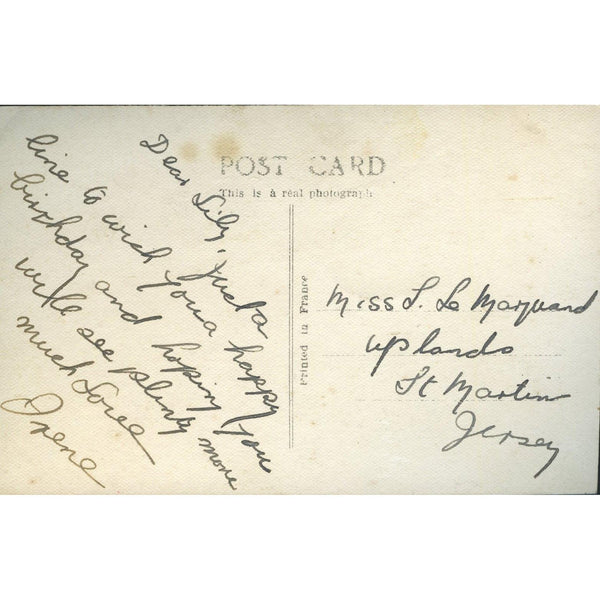 POST CARD
This is a real photograph
Printed in France
Dear Lily, just a
line to wish you a happy
birthday and hoping you
will see plenty more
much Love
Irene
Miss L. Le Marquand
Uplands
St Martin
Jersey